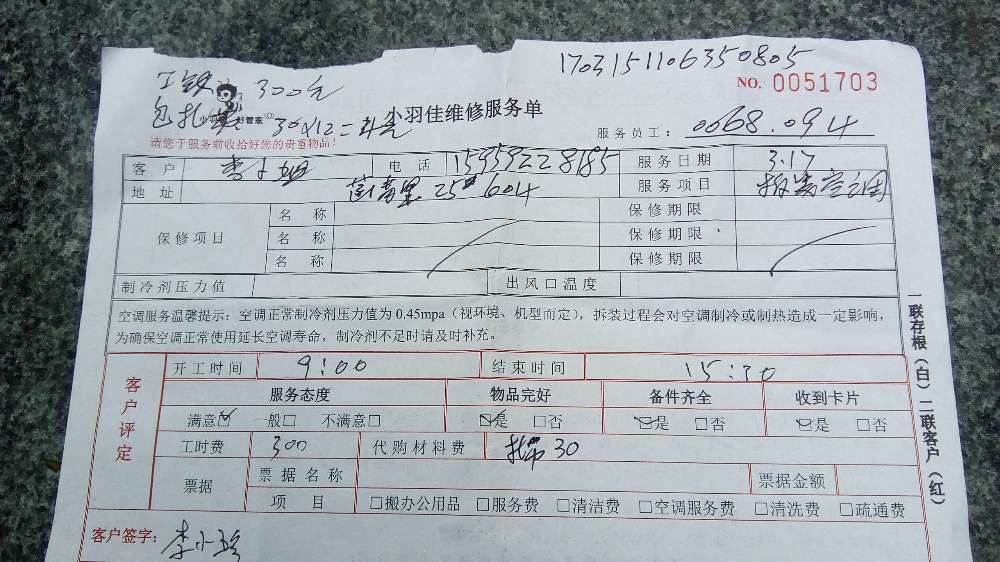 1703151106350805
NO. 0051703
工钱 300元
包扎费 30X12=
小羽佳 好管家
小羽佳维修服务单
请您于服务前收拾好您的贵重物品!
服务员工: 0668.094
客户 李小姐 电话 15959228185 服务日期 3.17
地址 莲青里25 604 服务项目 拆装空调
保修项目 名称 保修期限
名称 保修期限
名称 保修期限
制冷剂压力值 出风口温度
空调服务温馨提示: 空调正常制冷剂压力值为0.45mpa(视环境、机型而定),拆装过程会对空调制冷或制热造成一定影响,
为确保空调正常使用延长空调寿命,制冷剂不足时请及时补充。
客户评定
开工时间 9:00 结束时间 15:30
服务态度 物品完好 备件齐全 收到卡片
满意☑ 一般□ 不满意□ ☑是 □否 ☑是 □否 ☑是 □否
工时费 300 代购材料费 扎带30
票据 票据名称 票据金额
项目 □搬办公用品 □服务费 □清洁费 □空调服务费 □清洗费 □疏通费
客户签字: 李小
一联存根(白) 二联客户(红)